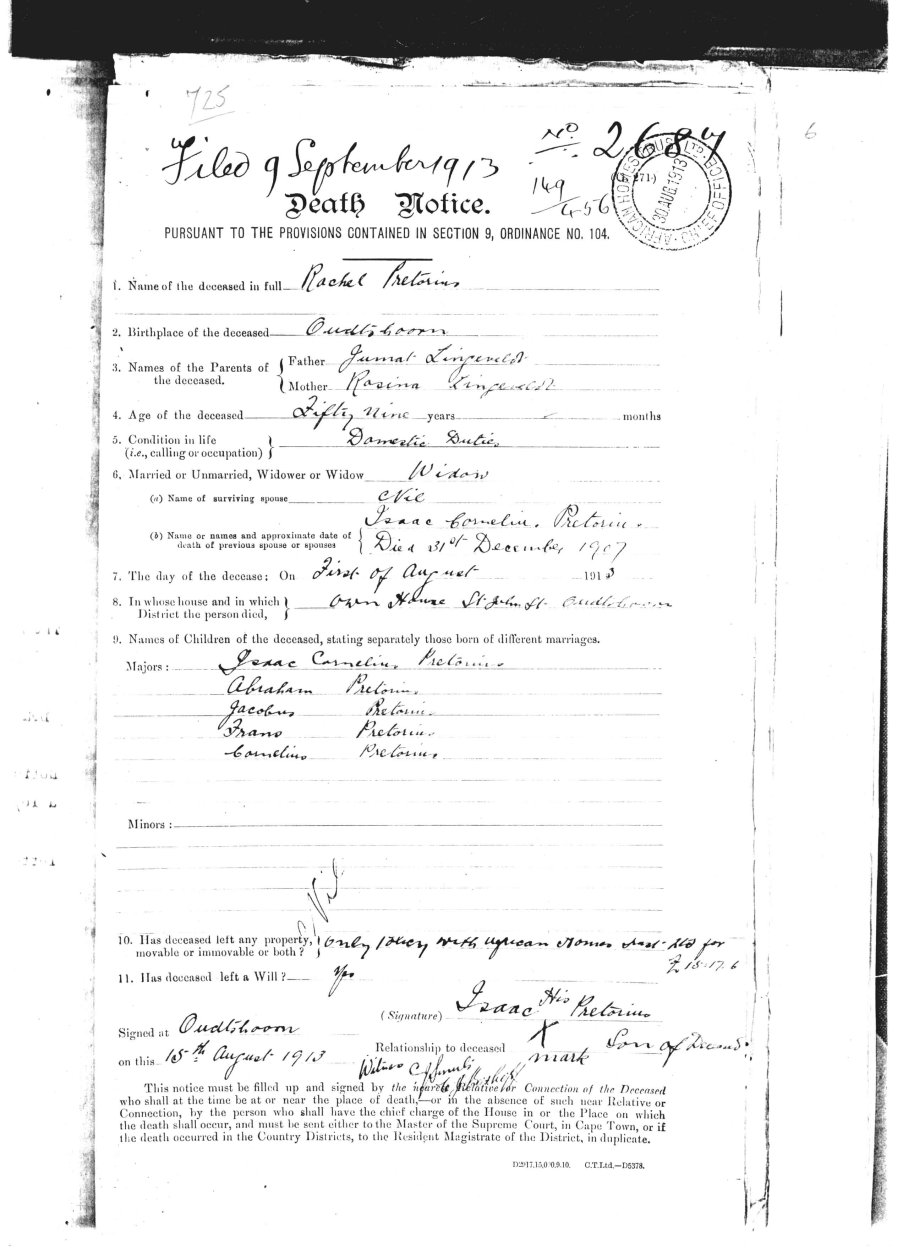 725
6
No 2687
Filed 9 September 1913
149/456
(G. 271.)
AFRICAN HOMES TRUST LTD. CHIEF OFFICE
30 AUG 1913
Death Notice.
PURSUANT TO THE PROVISIONS CONTAINED IN SECTION 9, ORDINANCE NO. 104.
1. Name of the deceased in full Rachel Pretorius
2. Birthplace of the deceased Oudtshoorn
3. Names of the Parents of the deceased. { Father Jumat Lingeveldt
Mother Rosina Lingeveldt
4. Age of the deceased Fifty Nine years months
5. Condition in life (i.e., calling or occupation) } Domestic Duties
6. Married or Unmarried, Widower or Widow Widow
(a) Name of surviving spouse Nil
(b) Name or names and approximate date of death of previous spouse or spouses { Isaac Cornelius Pretorius
Died 31st December 1907
7. The day of the decease; On First of August 1913
8. In whose house and in which District the person died, } Own House St John St Oudtshoorn
9. Names of Children of the deceased, stating separately those born of different marriages.
Majors: Isaac Cornelius Pretorius
Abraham Pretorius
Jacobus Pretorius
Frans Pretorius
Cornelius Pretorius
Minors:
Nil
10. Has deceased left any property, movable or immovable or both? } Only Policy with African Homes Trust Ltd for
£ 15.17.6
11. Has deceased left a Will? Yes
(Signature) Isaac His Pretorius
X
mark
Signed at Oudtshoorn
on this 15th August 1913
Relationship to deceased Son of Deceased
Witness
This notice must be filled up and signed by the nearest Relative or Connection of the Deceased
who shall at the time be at or near the place of death,—or in the absence of such near Relative or
Connection, by the person who shall have the chief charge of the House in or the Place on which
the death shall occur, and must be sent either to the Master of the Supreme Court, in Cape Town, or if
the death occurred in the Country Districts, to the Resident Magistrate of the District, in duplicate.
C.T.Ltd.—D5378.